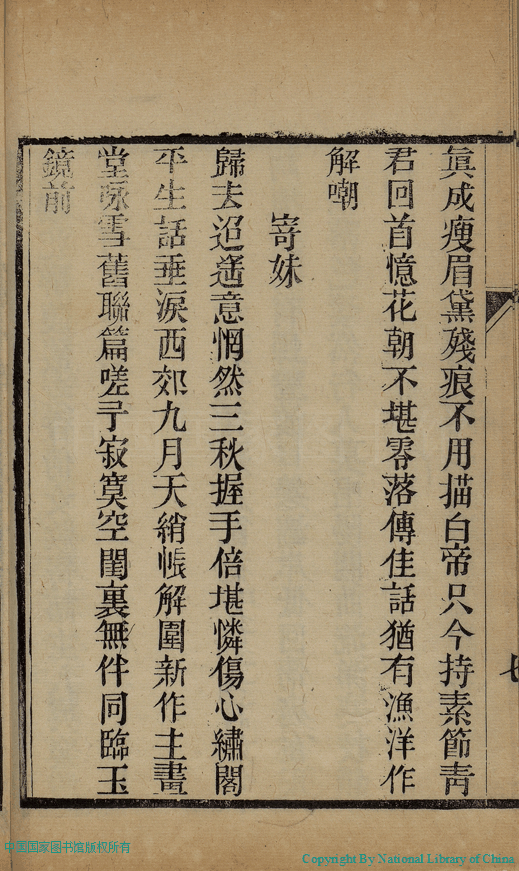 眞成瘦眉黛殘痕不用描白帝只今持素節靑
君回首憶花朝不堪零落傳佳話猶有漁洋作
解嘲
寄妹
歸去迢遥意惘然三秋握手倍堪憐傷心繡閣
平生話垂淚西郊九月天綃帳解圍新作主畫
堂詠雪舊聯篇嗟予寂寞空閨裏無伴同臨玉
鏡前
七
中国国家图书馆版权所有
Copyright By National Library of China